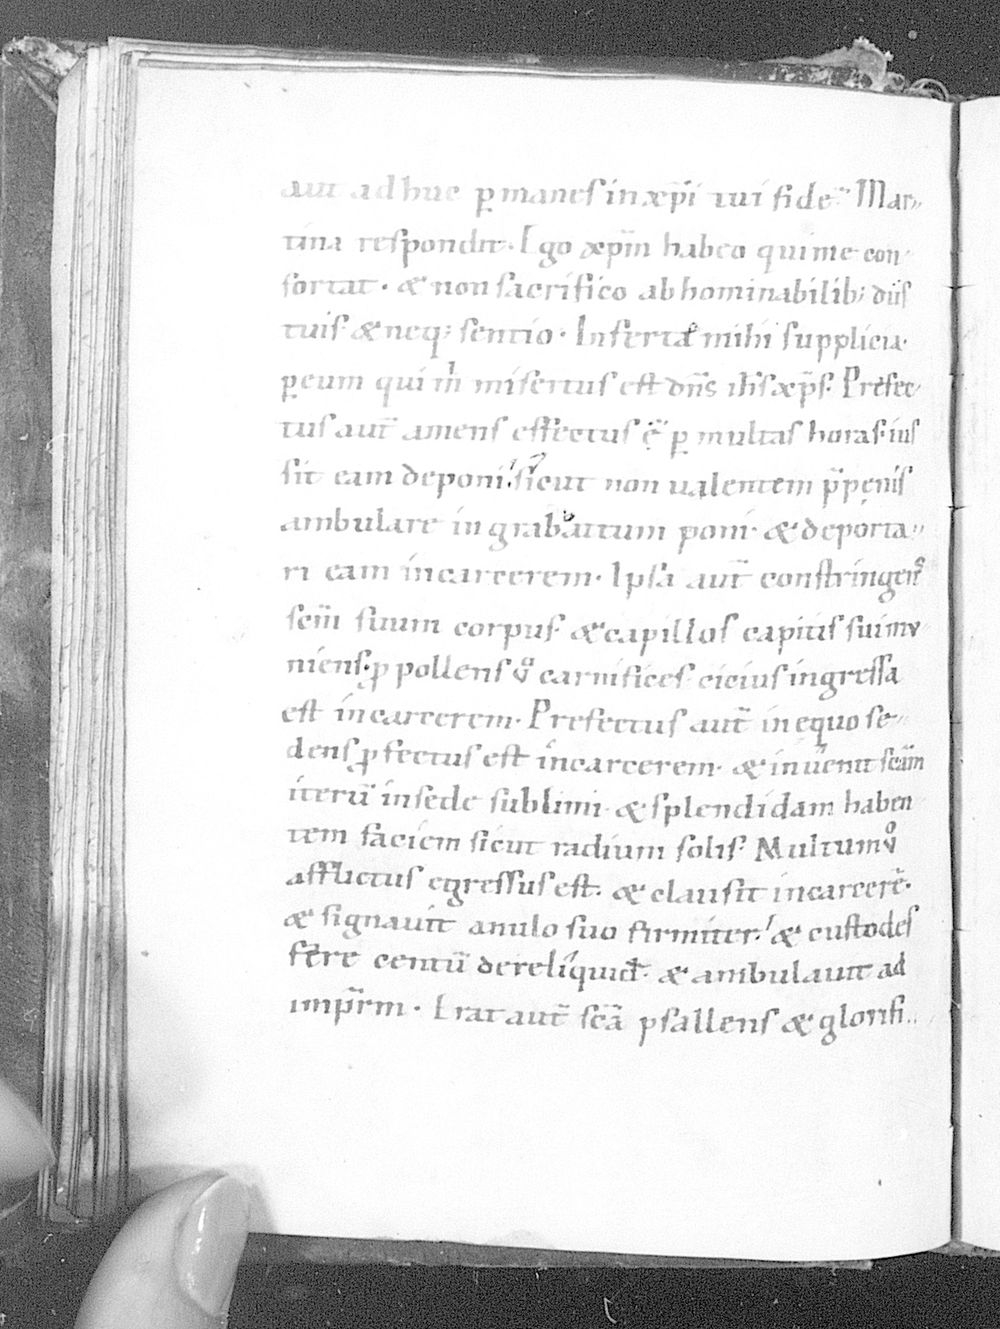 aut adhuc ꝑmanes in xp̄i tui fide. Mar-
tina respondit. Ego xp̄m habeo qui me con-
fortat. & non sacrifico abhominabilib; diis
tuis. & neq; sentio. Infert& mihi supplicia.
ꝑ eum qui m̊ misertus est dn̄s ih̄s xp̄s. Prefec-
tus aut̄ amens effectus ę̄ ꝑ multas horas. ius
sit eam deponi. sicut non ualentem p̄ pęnis
ambulare in grabattum poni. & deporta-
ri eam in carcerem. Ipsa aut̄ constringens
sem̄ suum corpus. & capillos capitis sui mu
niens. p̱pollens ů carnifices. eicius ingressa
est in carcerem. Prefectus aut̄ in equo se-
dens ꝓfectus est in carcerem. & inuenit sc̄am
iterū in sede sublimi. & splendidam haben
tem faciem sicut radium solis. Multum ů
afflictus egressus est. & clausit in carcerē.
& signauit anulo suo firmiter. & custodes
fere centū dereliquid. & ambulauit ad
imp̄rm. Erat aut̄ sc̄a psallens & glorifi-